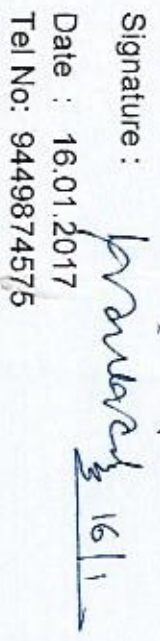 Signature : 16/1
Date : 16.01.2017
Tel No: 9449874575